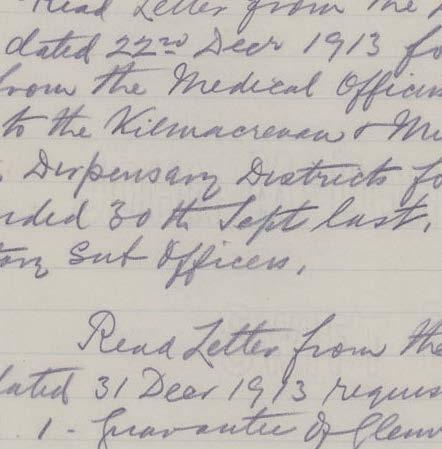 Read Letter from the
dated 22nd Decr 1913 fo
from the Medical Officers
to the Kilmacrenan & Mi
Dispensary Districts fo
nded 30th Sept last,
tory Sub Officers,
Read Letter from the
dated 31 Decr 1913 reques
1 - Guarantee of Glenv